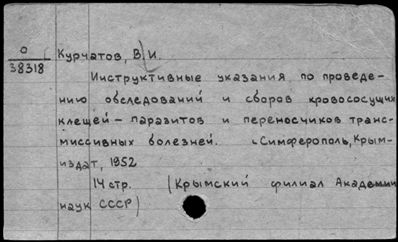 О
38318
Курчатов, В. И.
Инструктивные указания по проведе-
нию обследований и сборов кровососущих
клещей - паразитов и переносчиков транс-
миссивных болезней. Симферополь, Крым-
издат, 1952
14 стр. (Крымский филиал Академии
наук СССР)